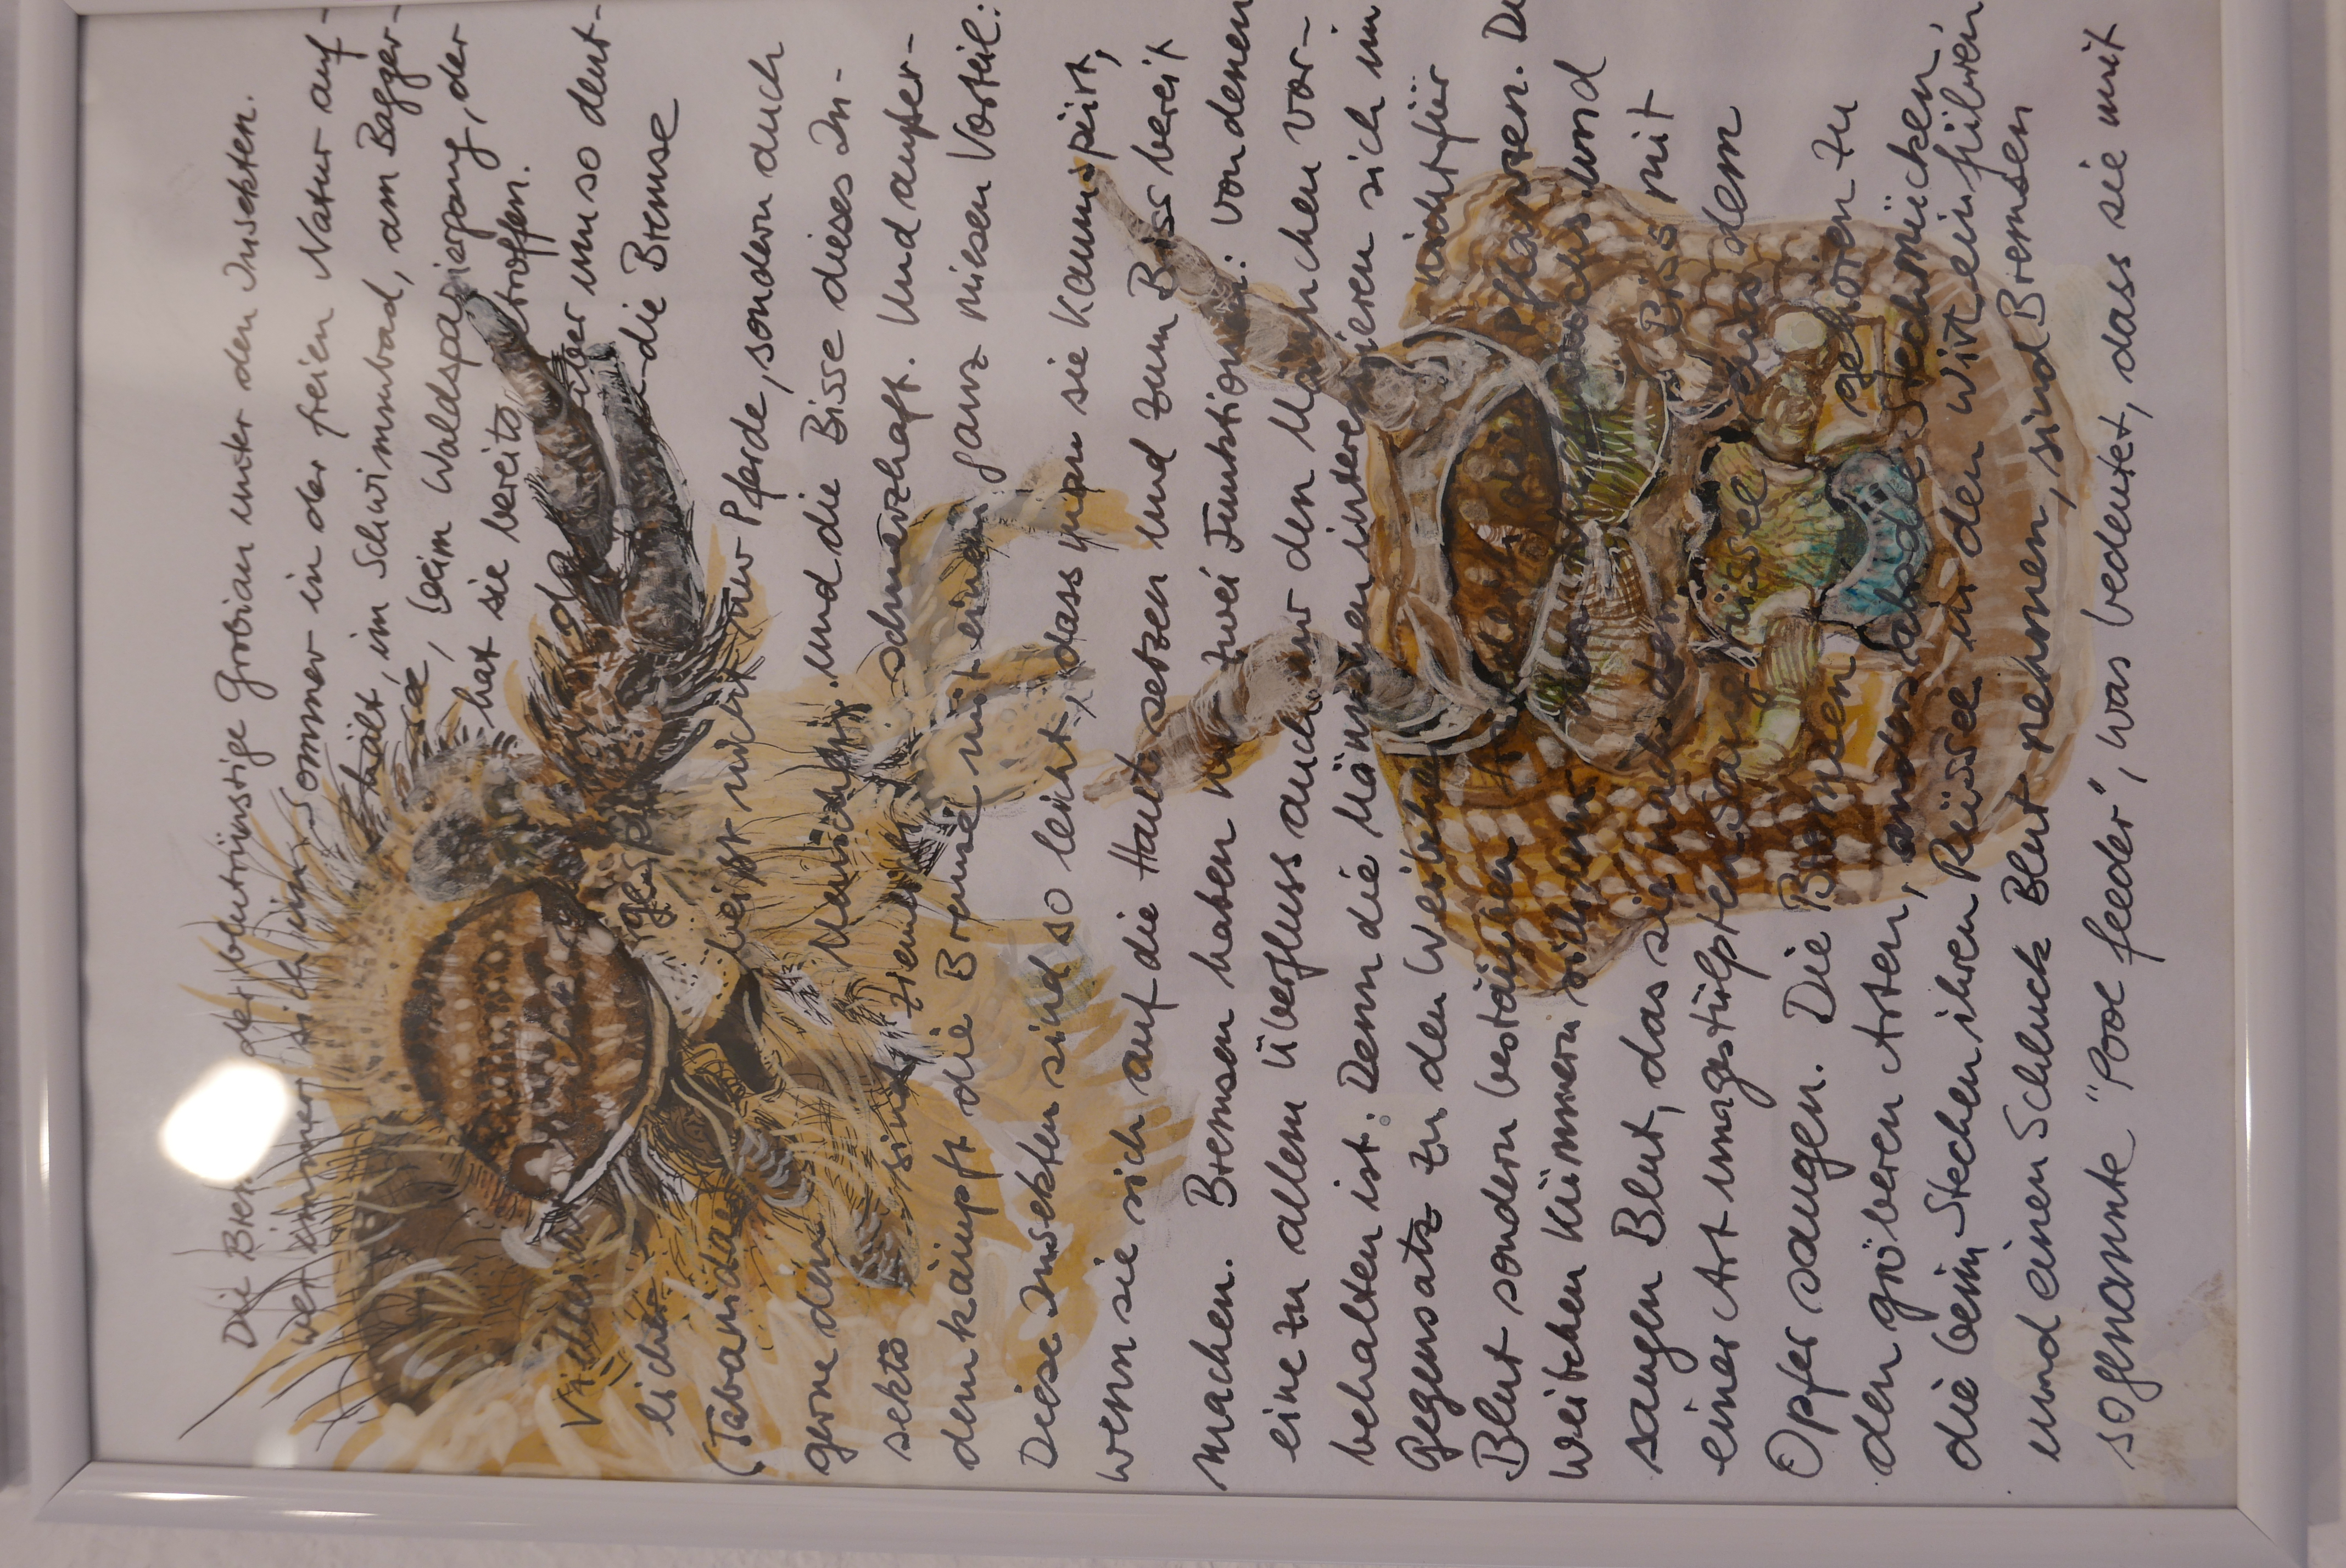 Die Brem der blutrünstige Grobian unter den Insekten.
wer immer sich im Sommer in der freien Natur auf-
hält, im Schwimmbad, am Bagger-
see, beim Waldspaziergang, der
hat sie bereits getroffen.
Vielleicht oder umso deut-
licher gespürt die Bremse
(Tabanidae) beisst nicht nur Pferde, sondern auch
gerne den Menschen. und die Bisse dieses In-
sekts sind ziemlich schmerzhaft. Und außer-
dem kämpft die Bremse mit einem ganz miesen Vorteil:
Diese Insekten sind so leicht, dass man sie kaum spürt,
wenn sie sich auf die Haut setzen und zum Biss bereit
machen. Bremsen haben nur zwei Funktionen: von denen
eine zu allem Überfluss auch nur den Männchen vor-
behalten ist: Denn die Männchen interessieren sich im
Gegensatz zu den Weibchen nicht für
Blut sondern bestäuben Pflanzen. Di
Weibchen kümmern sich um und
saugen Blut, das sie nach dem Biss mit
einer Art umgestülpten Saugrüssel aus dem
Opfer saugen. Die Bremsen gehören zu
den gröberen Arten, anders als die Stechmücken,
die beim Stechen ihren Rüssel in den Wirt einführen
und einen Schluck Blut nehmen, sind Bremsen
sogenannte "Pool feeder", was bedeutet, dass sie mit